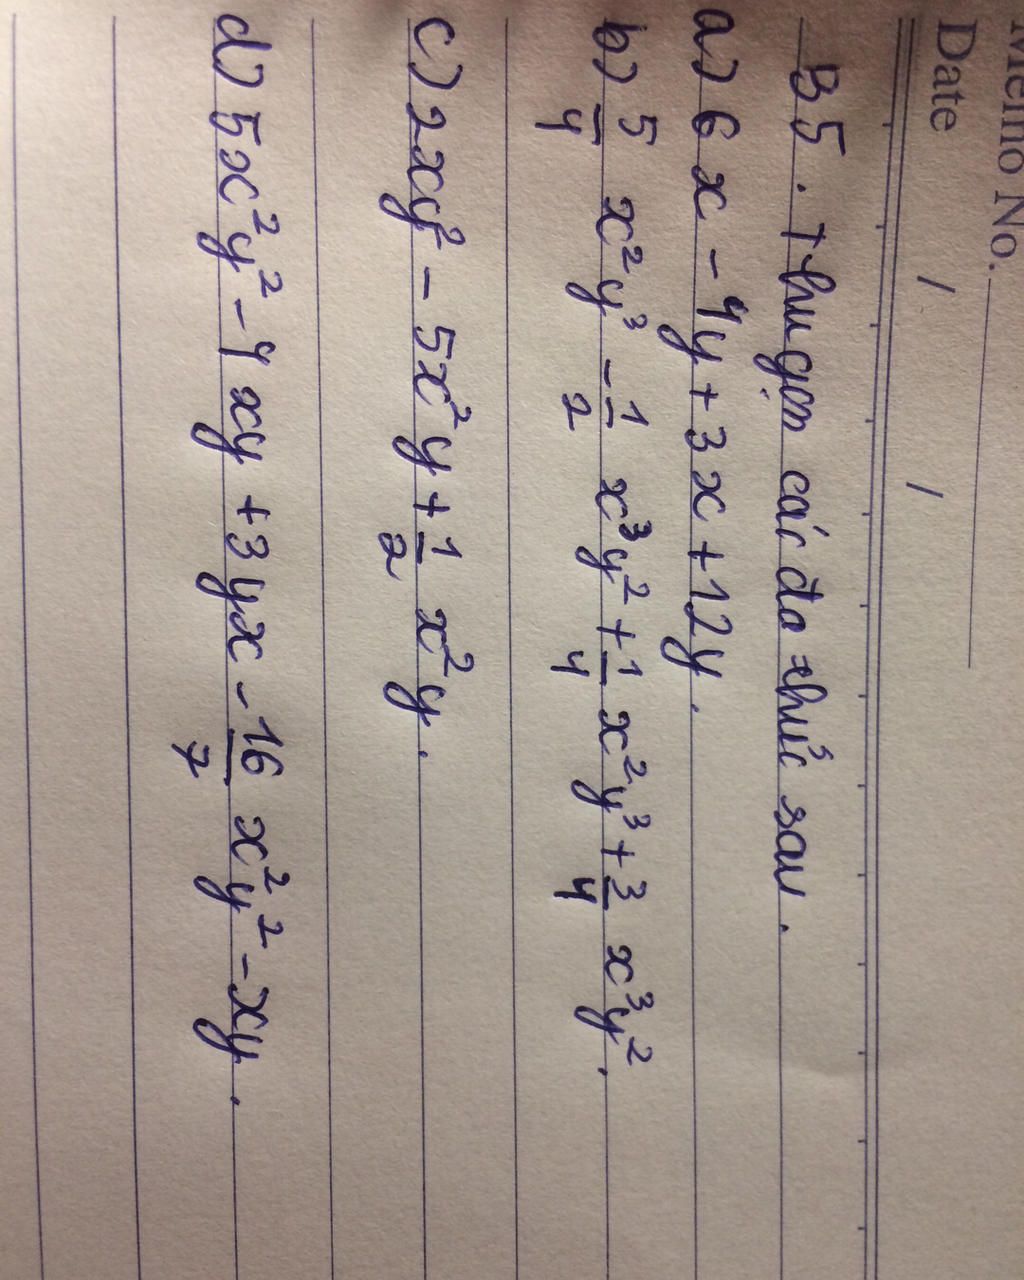 Memo No.
Date / /
B5. Thu gọn các đa thức sau.
a) 6x - 4y + 3x + 12y.
b) 5/4 x²y³ - 1/2 x³y² + 1/4 x²y³ + 3/4 x³y².
c) 2xy² - 5x²y + 1/2 x²y.
d) 5x²y² - 4xy + 3yx - 16/7 x²y² - xy.